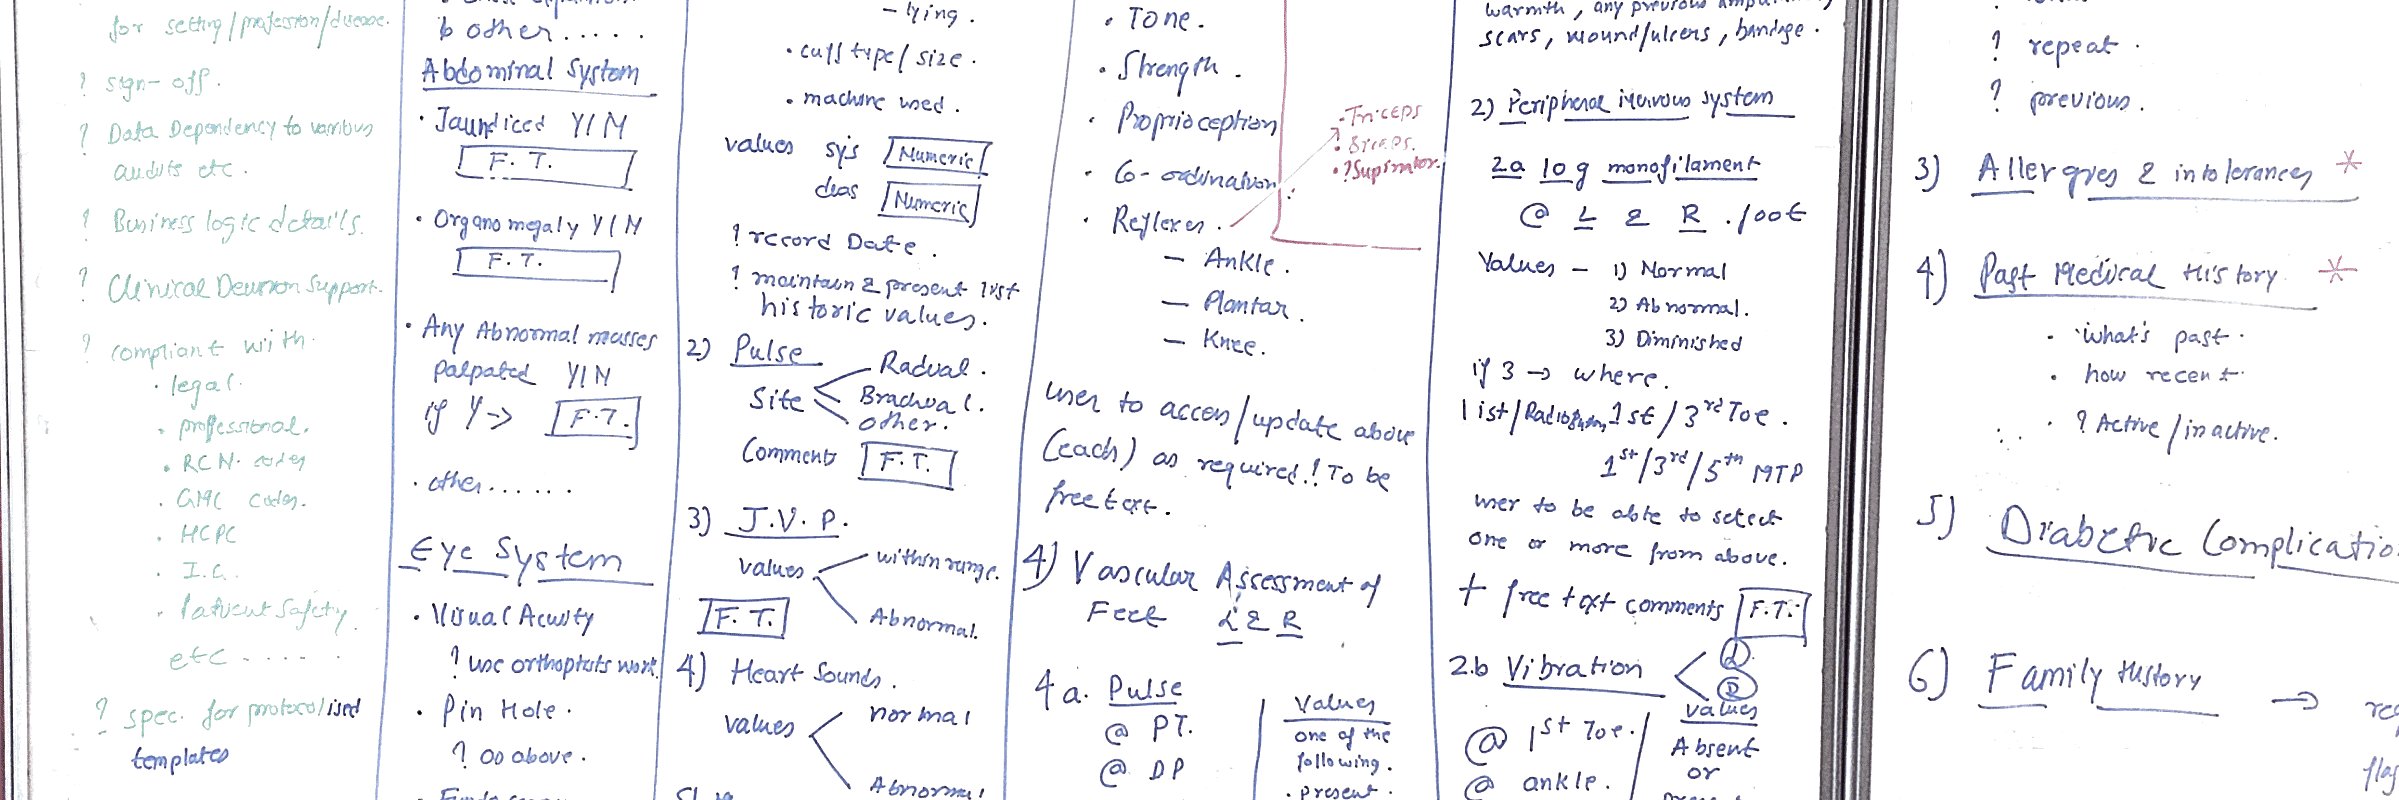 for setting/profession/disease.
? sign-off.
? Data Dependency to various
audits etc.
? Business logic details.
? Clinical Decision Support.
? compliant with
• legal.
• professional.
• RCN codes
• GMC codes.
• HCPC
• I.G.
• Patient Safety
etc .....
? spec. for protocolised
templates
& other.....
Abdominal System
• Jaundiced Y/N
F.T.
• Organomegaly Y/N
F.T.
• Any Abnormal masses
palpated Y/N
if Y → F.T.
• other......
Eye System
• Visual Acuity
? use orthoptists work
• Pin Hole.
? as above.
– lying.
• cuff type/size.
• machine used.
values sys Numeric
dias Numeric
? record Date.
? maintain & present list
historic values.
2) Pulse
Site
Radial.
Brachial.
other.
Comments F.T.
3) J.V.P.
values
within range.
Abnormal.
F.T.
4) Heart Sounds.
values
normal
Abnormal
• Tone.
• Strength.
• Proprioception
• Co-ordination
• Reflexes.
– Ankle.
– Plantar.
– Knee.
- Triceps
• Biceps.
• ? Supinator.
user to access/update above
(each) as required! To be
free text.
4) Vascular Assessment of
Feet L & R
4a. Pulse
@ PT.
@ DP
Values
one of the
following.
• present.
warmth, any previous
scars, wound/ulcers, bandage.
2) Peripheral nervous system
2a 10g monofilament
@ L & R. foot
Values – 1) Normal
2) Abnormal.
3) Diminished
if 3 → where.
list/ 1st/3rd Toe.
1st/3rd/5th MTP
user to be able to select
one or more from above.
+ free text comments F.T.
2.b Vibration
L
R
@ 1st Toe.
@ ankle.
values
Absent
or
? repeat.
? previous.
3) Allergies & intolerances *
4) Past Medical History *
• what's past.
• how recent.
• ? Active/inactive.
5) Diabetic Complicatio
6) Family History →